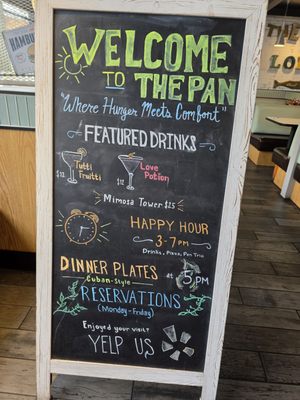 WELCOME
TO THE PAN
"Where Hunger Meets Comfort"
FEATURED DRINKS
$12 Tutti Fruitti
$12 Love Potion
Mimosa Tower $25
HAPPY HOUR
3-7pm
Drinks, Pizza, Pan Trio
DINNER PLATES at 5pm
Cuban-Style
RESERVATIONS
(Monday-Friday)
Enjoyed your visit?
YELP US
HAMBU
The
LO